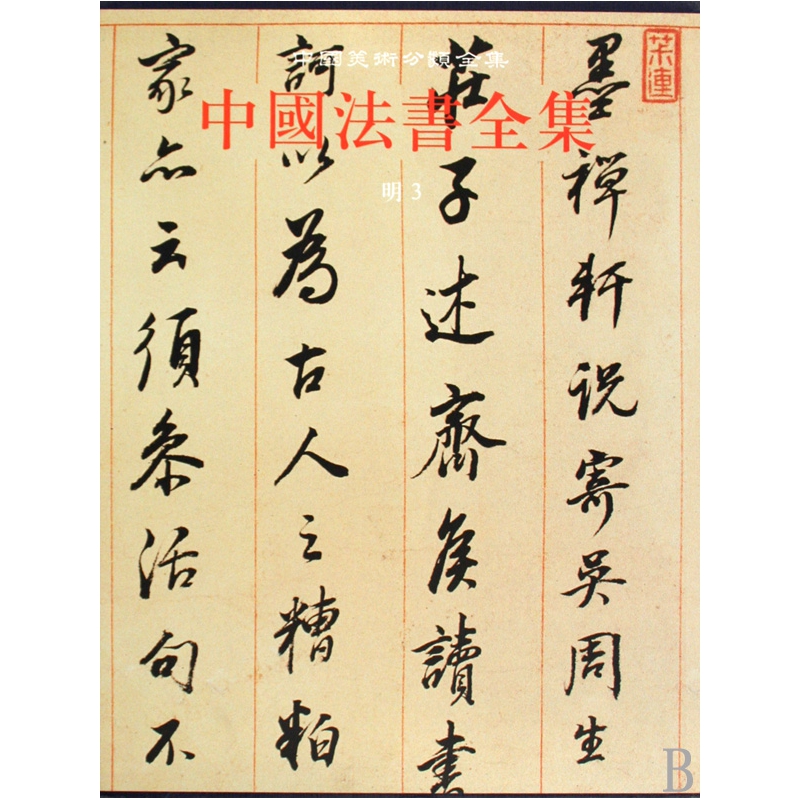 中國美術分類全集
中國法書全集
明 3
墨禪軒说寄吴周生
莊子述齊侯讀書
訶以為古人之糟粕
家亦云須叅活句不
B